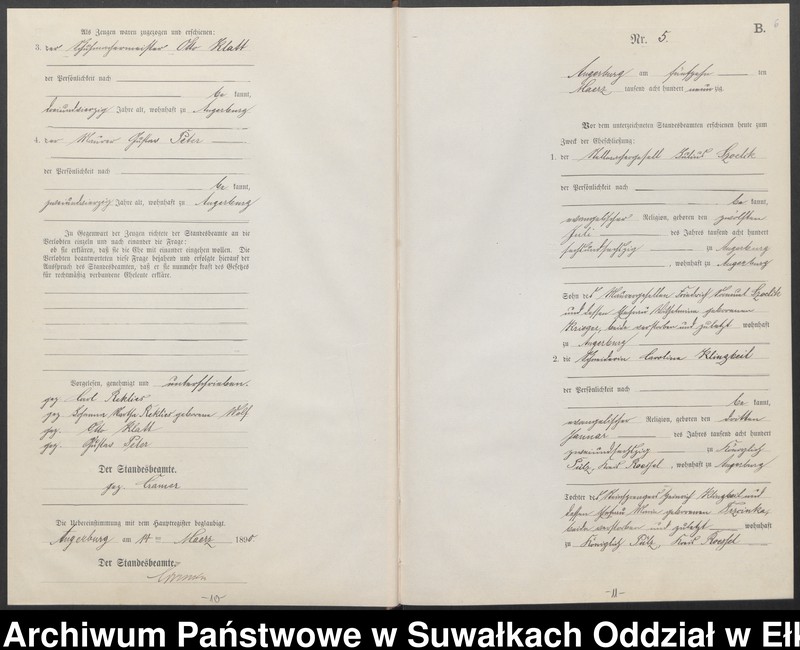 Als Zeugen waren zugezogen und erschienen:
3. der Schuhmachermeister Otto Klatt
der Persönlichkeit nach
be kannt,
Jahre alt, wohnhaft zu Angerburg
4. der Maurer Gustav Peter
der Persönlichkeit nach
be kannt,
zweiundvierzig Jahre alt, wohnhaft zu Angerburg
In Gegenwart der Zeugen richtete der Standesbeamte an die
Verlobten einzeln und nach einander die Frage:
ob sie erklären, daß sie die Ehe mit einander eingehen wollen. Die
Verlobten beantworteten diese Frage bejahend und erfolgte hierauf der
Ausspruch des Standesbeamten, daß er sie nunmehr kraft des Gesetzes
für rechtmäßig verbundene Eheleute erkläre.
Vorgelesen, genehmigt und unterschrieben.
gez. Carl Reklies
gez. Johanna Martha Reklies geborene Wolf
gez. Otto Klatt
gez. Gustav Peter
Der Standesbeamte.
gez. Cramer
Die Uebereinstimmung mit dem Hauptregister beglaubigt.
Angerburg am 14ten Maerz 1890
Der Standesbeamte.
Cramer
-10-
B.
6
Nr. 5.
Angerburg am fünfzehn ten
Maerz tausend acht hundert neunzig
Vor dem unterzeichneten Standesbeamten erschienen heute zum
Zweck der Eheschließung:
1. der Julius Szoelik
der Persönlichkeit nach
be kannt,
evangelischer Religion, geboren den zwölften
Juli des Jahres tausend acht hundert
sechsundsechszig zu Angerburg
, wohnhaft zu Angerburg
Sohn des Maurergesellen Friedrich Szoelik
und dessen Ehefrau Wilhelmine geborenen
Krieger, beide verstorben und zuletzt wohnhaft
zu Angerburg
2. die Schneiderin Caroline Klingbeil
der Persönlichkeit nach
be kannt,
evangelischer Religion, geboren den dritten
Januar des Jahres tausend acht hundert
zweiundsechszig zu Königlich
Pülz, Kreis Roessel, wohnhaft zu Angerburg
Tochter des Heinrich Klingbeil und
dessen Ehefrau Marie geborenen
beide verstorben und zuletzt wohnhaft
zu Königlich Pülz, Kreis Roessel
-11-
Archiwum Państwowe w Suwałkach Oddział w Ełk